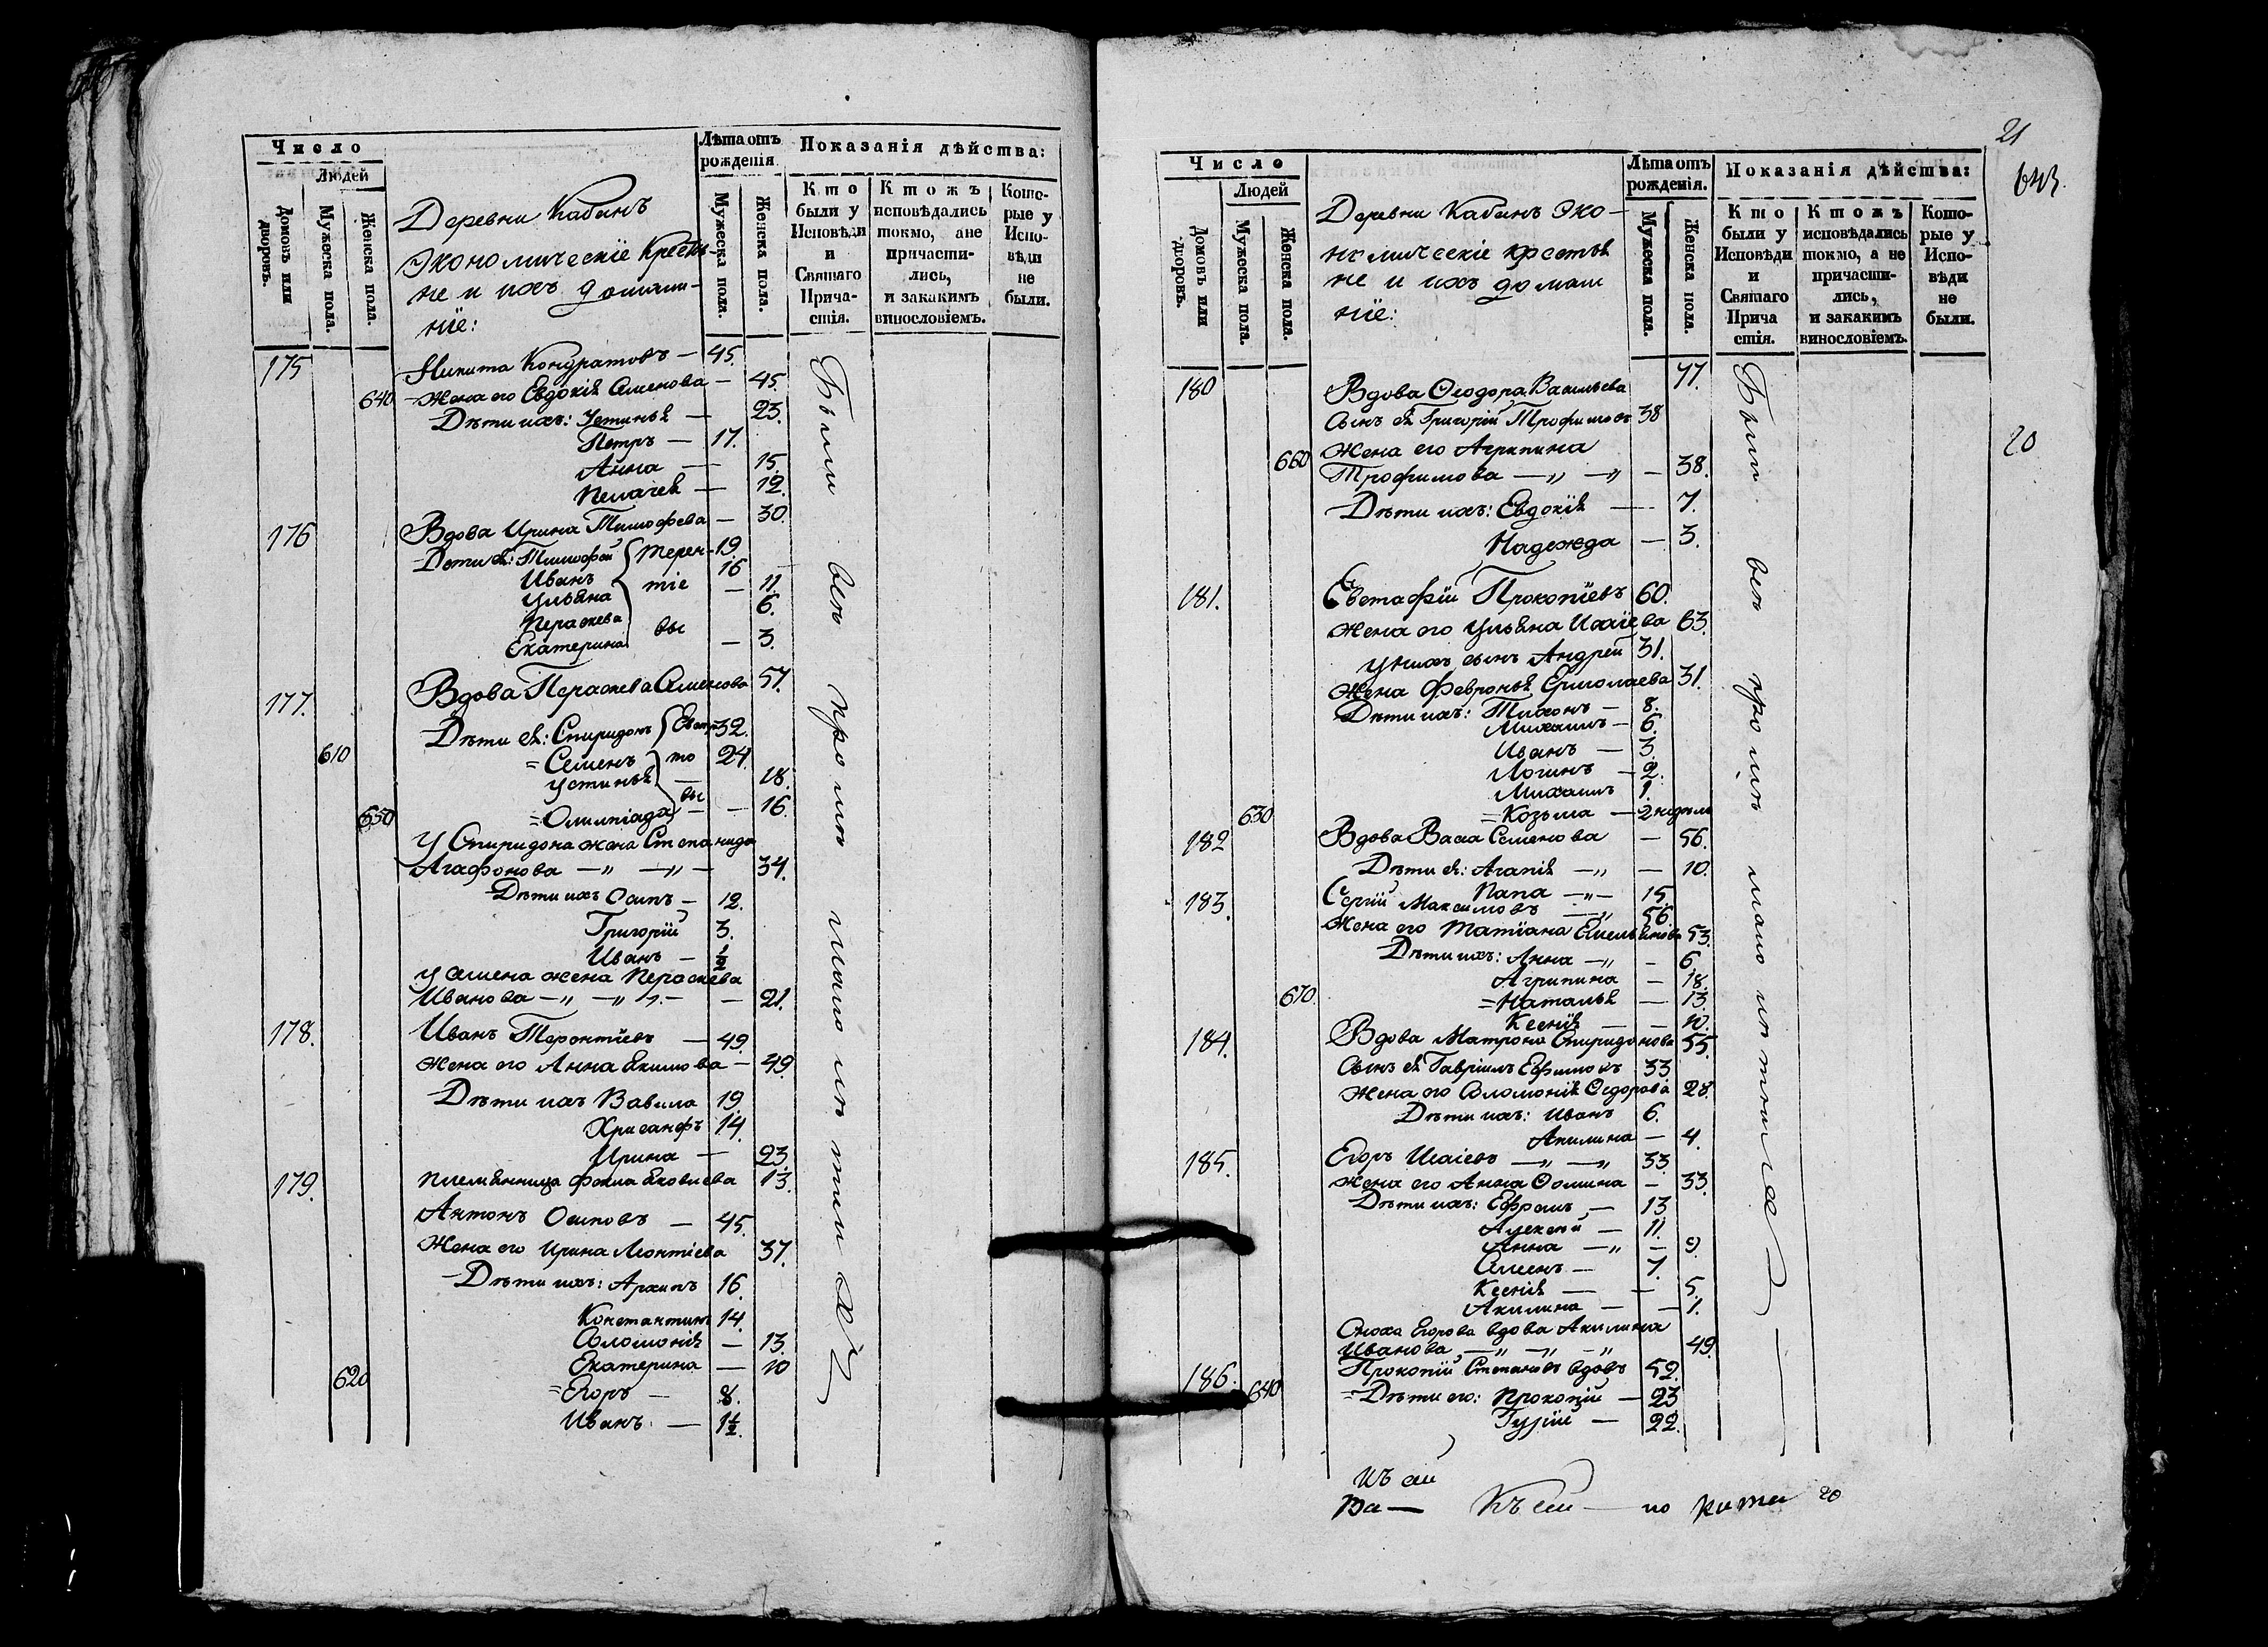 Число
Людей
Домовъ или дворовъ.
Мужеска пола.
Женска пола.
Деревни Кабанъ
Экономическіе Крестья-
не и ихъ домаш-
ніе:
Лѣта отъ рожденія
Мужеска пола.
Женска пола.
Показанія дѣйства:
Кто были у Исповѣди и Святаго Прича-стія.
Ктожъ исповѣдались токмо, ане причасти-лись, и закакимъ винословіемъ.
Кото-рые у Испо-вѣди не были.
175 Никита Кондратовъ — 45.
640 Жена его Евдокія Семенова — 45.
Дѣти ихъ: Устинья — 23.
Петръ — 17.
Анна — 15.
Пелагея — 12.
176 Вдова Ирина Тимофева — 30.
Дѣти ея: Тимофей Терен- 19.
Иванъ 16
Ульяна тіе — 11.
Пераскева 6.
Екатерина вы — 3.
177. Вдова Пераскева Семенова 57.
Дѣти ея: Спиридонъ 32.
610 = Семенъ то 24.
Устинья — 18.
650 = Олимпіада вы — 16.
У Спиридона жена Степанида
Агафонова —„ —„ — 34.
Дѣти ихъ Осипъ — 12.
Григорій 3.
Иванъ — ½
У Семена жена Пераскева
Иванова —„ —„ — 21.
178. Иванъ Терентіевъ — 49.
Жена его Анна Екимова — 49.
Дѣти ихъ Вавила 19.
Хрисанфъ 14.
Ирина — 23.
179. племянница Фокла Яковлева 13.
Антонъ Осиповъ — 45.
Жена его Ирина Леонтіева 37.
Дѣти ихъ: Архипъ 16.
Константинъ 14.
Соломонія — 13.
Екатерина — 10
620 = Егоръ — 8.
Иванъ — 1½.
Были всѣ
21
643.
20
Число
Людей
Домовъ или дворовъ.
Мужеска пола.
Женска пола.
Деревни Кабанъ Эко-
номическіе крестья
не и ихъ домаш
ніе:
Лѣта отъ рожденія.
Мужеска пола.
Женска пола.
Показанія дѣйства:
Кто были у Исповѣди и Святаго Прича стія.
Ктожъ исповѣдались токмо, а не причасти-лись, и закакимъ винословіемъ.
Кото-рые у Испо-вѣди не были.
180 Вдова Ѳеодора Васильева 77.
Сынъ ея Григорій Трофимовъ 38
Жена его Агрипина
660 Трофимова —„ —„ — 38.
Дѣти ихъ: Евдокія — 7.
Надежда — 3.
181. Евстафій Прокопіевъ 60.
Жена его Ульяна Исаіева 63.
У нихъ сынъ Андрей 31.
Жена Февронья Ермолаева 31.
Дѣти ихъ: Тихонъ — 8.
Михаилъ — 6.
Иванъ — 3
Логинъ — 2.
Михаилъ 1.
630 = Козьма — 2 недѣли
182 Вдова Васа Семенова — 56.
Дѣти ея: Агапія —„ — 10.
Папа —„— 15
183. Сергій Максимовъ —„ 56.
Жена его Татіана Емельянова 53.
Дѣти ихъ: Анна —„ — 6
Агрипина — 18.
670. = Наталья — 13.
Ксенія — — 10.
184. Вдова Матрона Спиридонова 55.
Сынъ ея Гавріилъ Ефимовъ 33
Жена его Соломонія Ѳедорова 28.
Дѣти ихъ: Иванъ 6.
Акилина — 4.
185. Егоръ Исаіевъ —„ —„ 33.
Жена его Анна Ѳомина — 33.
Дѣти ихъ: Ефремъ — 13
Алексей — 11.
Анна —„ — 9.
Семенъ — 7.
Ксенія — — 5.
Акилина — — 1.
Сноха Егорова вдова Акилина
Иванова —„ —„ —„ 49.
186. Прокопій Степановъ вдовъ 52.
640 = Дѣти его: Прокопій — 23
Гурій — 22.
Были всѣ
Къ сей
Къ сей — по 20